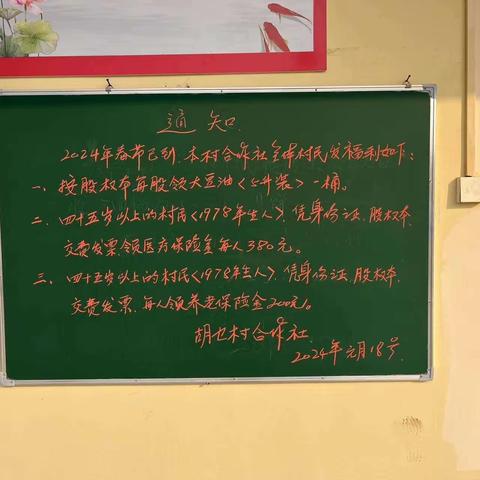 通知
2024年春节已到,本村合作社全体村民发福利如下:
一、按股权本每股领大豆油<5升装>一桶。
二、四十五岁以上的村民<1978年生人>,凭身份证,股权本,
交费发票,领医疗保险金每人380元。
三、四十五岁以上的村民<1978年生人>,凭身份证,股权本,
交费发票,每人领养老保险金200元。
胡也村合作社
2024年元月18号